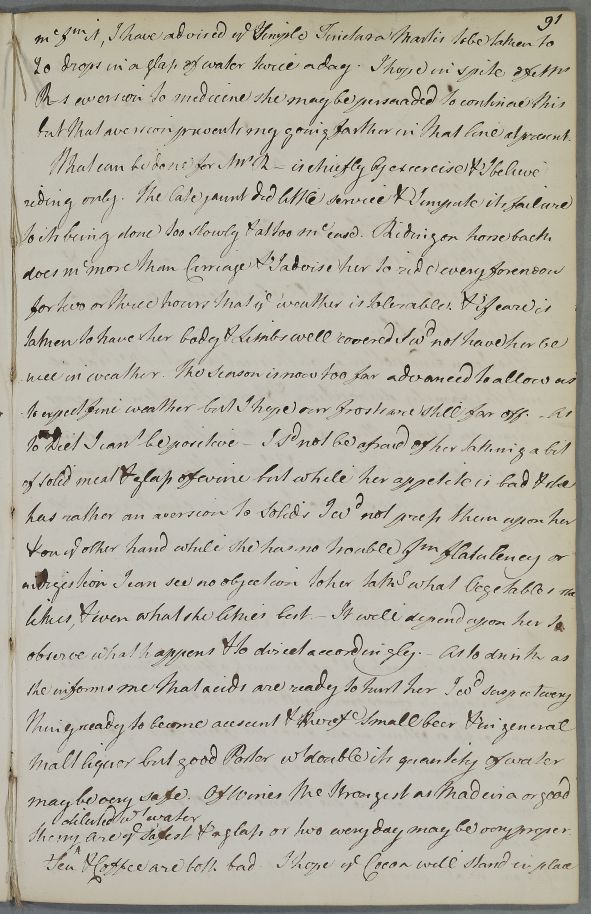 91
mc fm it, I have advised ye Simple Tinctura Martis to be taken to
20 drops in a glass of water twice a day. I hope in spite of Mrs
R-s aversion to medicine she may be persuaded to continue this
but that aversion prevents my going farther in that line at present.
What can be done for Mrs R - is chiefly by exercise & I believe
riding only. The late jaunt did little service & I impute its failure
to its being done too slowly & at too mc ease. Riding on horse back
does mc more than Carriage & I advise her to ride every forenoon
for two or three hours that ye weather is tolerable. & if care is
taken to have her body & Limbs well covered I wd not have her be
nice in weather. The Season is now too far advanced to allow us
to expect fine weather but I hope our frosts are still far off. - As
to Diet I cant be positive - I sd not be afraid of her taking a bit
of solid meat & a glass of wine but while her appetite is bad & she
has rather an aversion to Solids I wd not press them upon her
& on ye other hand while she has no trouble fm flatulency or
indigestion I can see no objection to her takg what Vegetables she
likes, & even what she likes best. - It will depend upon her to
observe what happens & to direct accordingly. - As to drink as
she informs me that acids are ready to hurt her I wd suspect every
thing ready to become acescent & therefe Small beer & in general
malt liquor but good Porter wt double its quantity of water
may be very safe. Of Wines the Strongest as Madeira or good
diluted wt water
Sherry are ye safest & a glass or two every day may be very proper.
Tea & Coffee are both bad. I hope ye Cocoa will stand in place